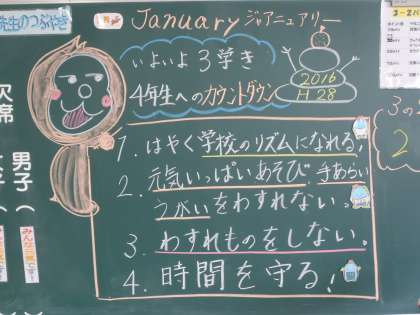 先生のつぶやき
January ジャアニュアリー
いよいよ3学き
4年生へのカウントダウン
2016
H28
1. はやく学校のリズムになれる!
2. 元気いっぱいあそび、手あらい
うがいをわすれない。
3. わすれものをしない。
4. 時間を守る!
欠席
男子(
3の
2